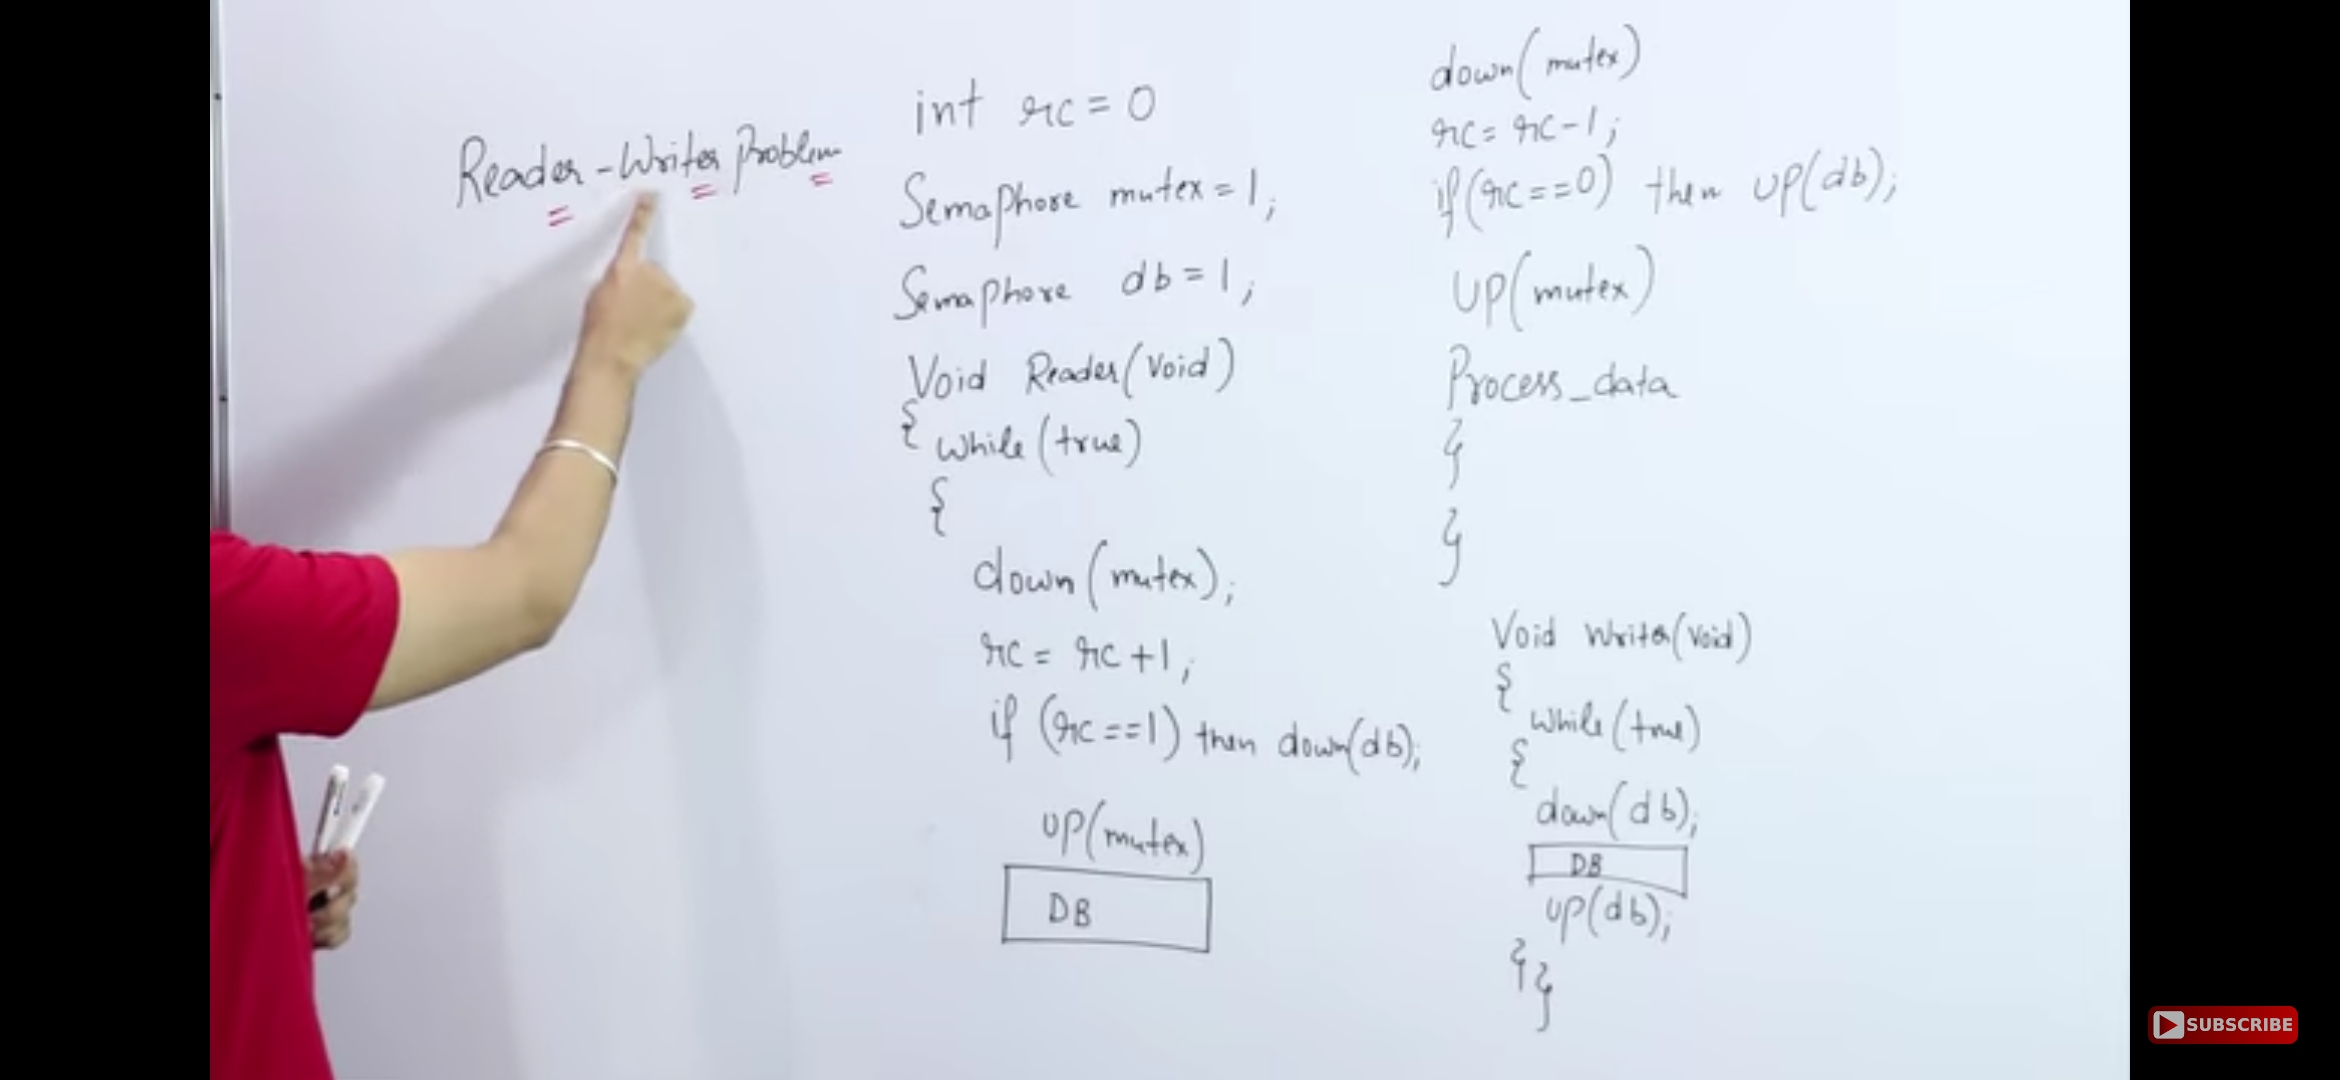 Reader-Writer Problem
int rc = 0
Semaphore mutex = 1;
Semaphore db = 1;
Void Reader(Void)
{ while(true)
{
down(mutex);
rc = rc+1;
if (rc==1) then down(db);
up(mutex)
DB
down(mutex)
rc = rc-1;
if(rc==0) then up(db);
up(mutex)
Process_data
}
}
Void Writer(Void)
{
while(true)
{
down(db);
DB
up(db);
}}
SUBSCRIBE